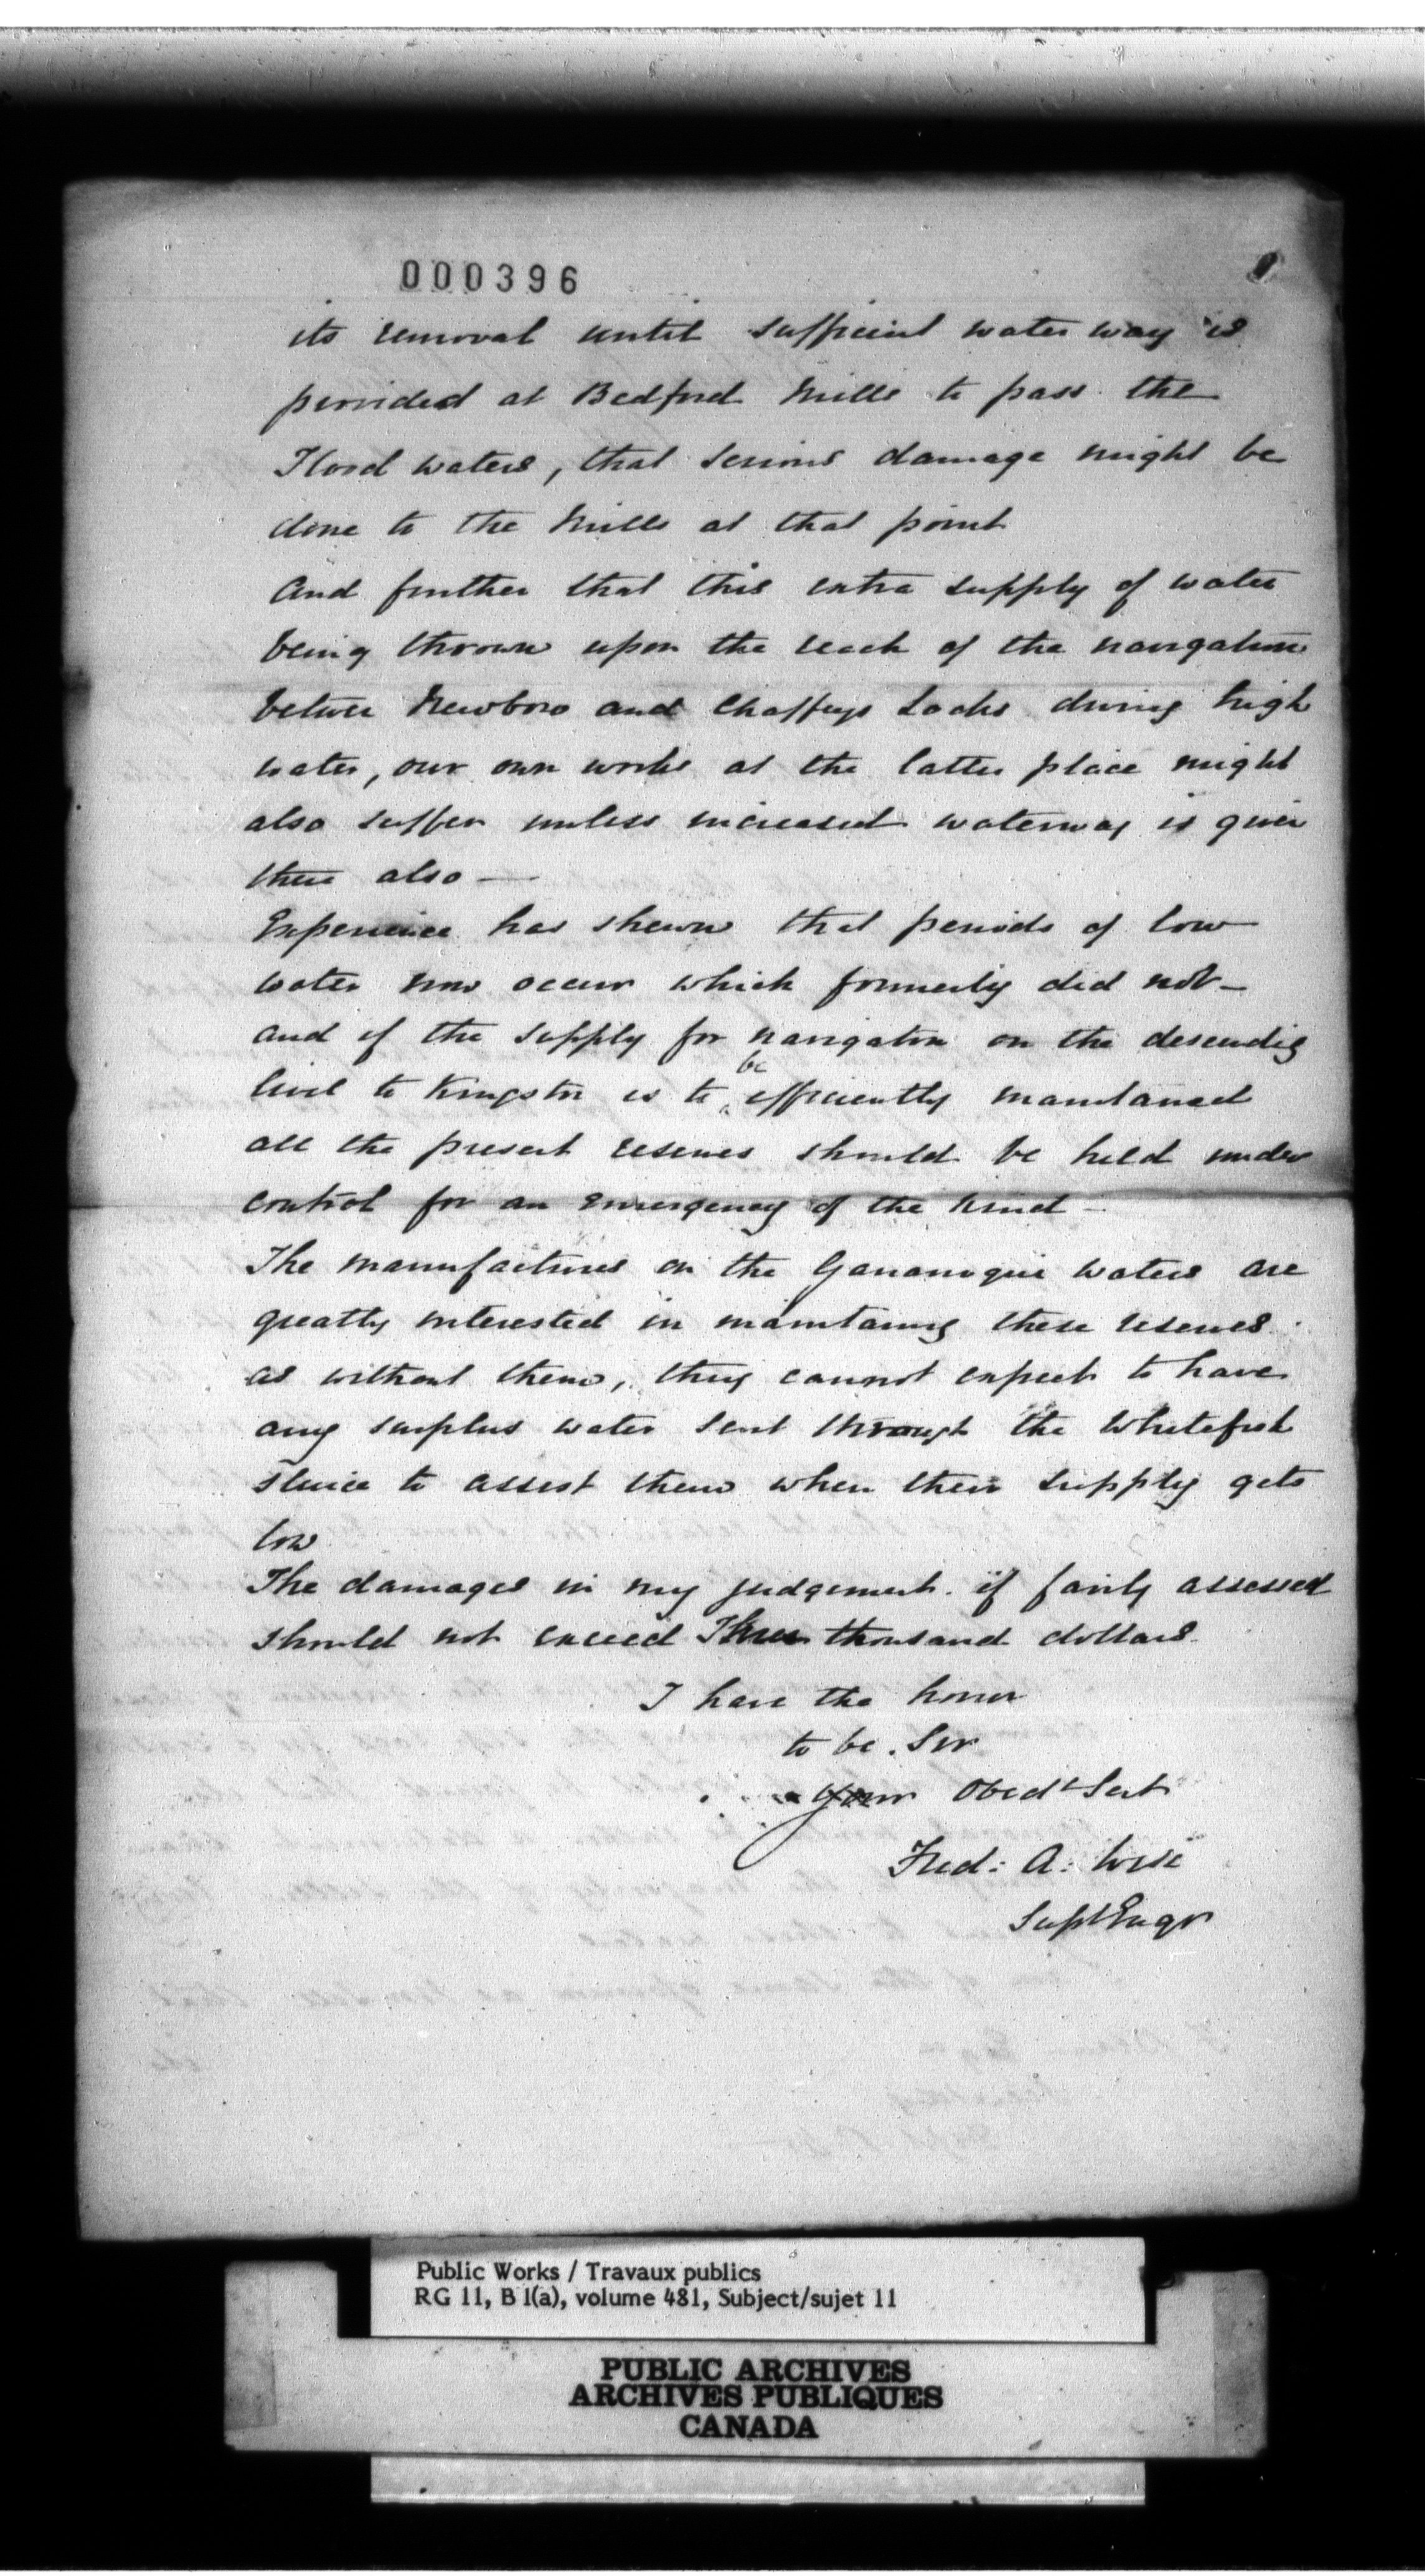 000396
its removal until sufficient water way is
provided at Bedford Mills to pass the
Flood waters, that serious damage might be
done to the Mills at that point
And further that this extra supply of water
being thrown upon the reach of the navigation
between Newboro and Chaffeys Locks during high
water, our own works at the latter place might
also suffer unless increased waterway is given
there also —
Experience has shewn that periods of low
water now occur which formerly did not —
and if the supply for navigation on the descending
level to Kingston is to be efficiently maintained
all the present reserves should be held under
control for an emergency of the kind —
The manufactures on the Gananoque waters are
greatly interested in maintaining these reserves
as without them, they cannot expect to have
any surplus water sent through the Whitefish
sluice to assist them when their supply gets
low
The damages in my judgement if fairly assessed
should not exceed Three thousand dollars.
I have the honor
to be. Sir
Your Obedt Servt
Fred: A: Wise
Supt Engr
Public Works / Travaux publics
RG 11, B 1(a), volume 481, Subject/sujet 11
PUBLIC ARCHIVES
ARCHIVES PUBLIQUES
CANADA